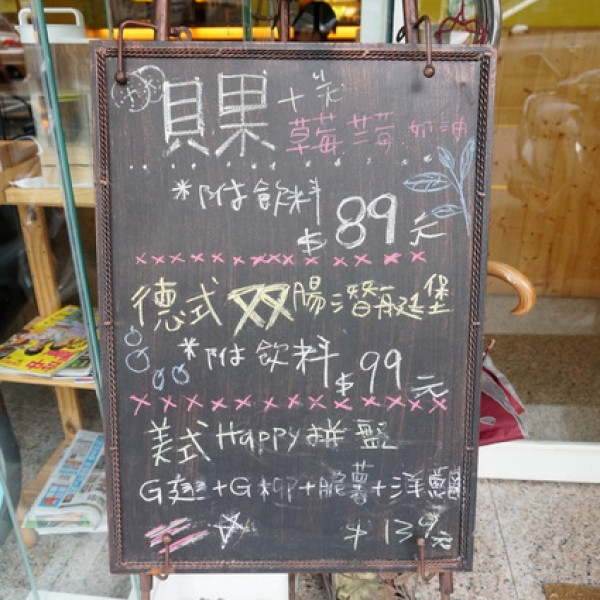 貝果+米
草莓 莎莓 奶油
*附飲料
$89元
德式双腸潛艇堡
*附飲料$99元
美式Happy拼盤
G翅+G柳+脆薯+洋蔥圈
$139元